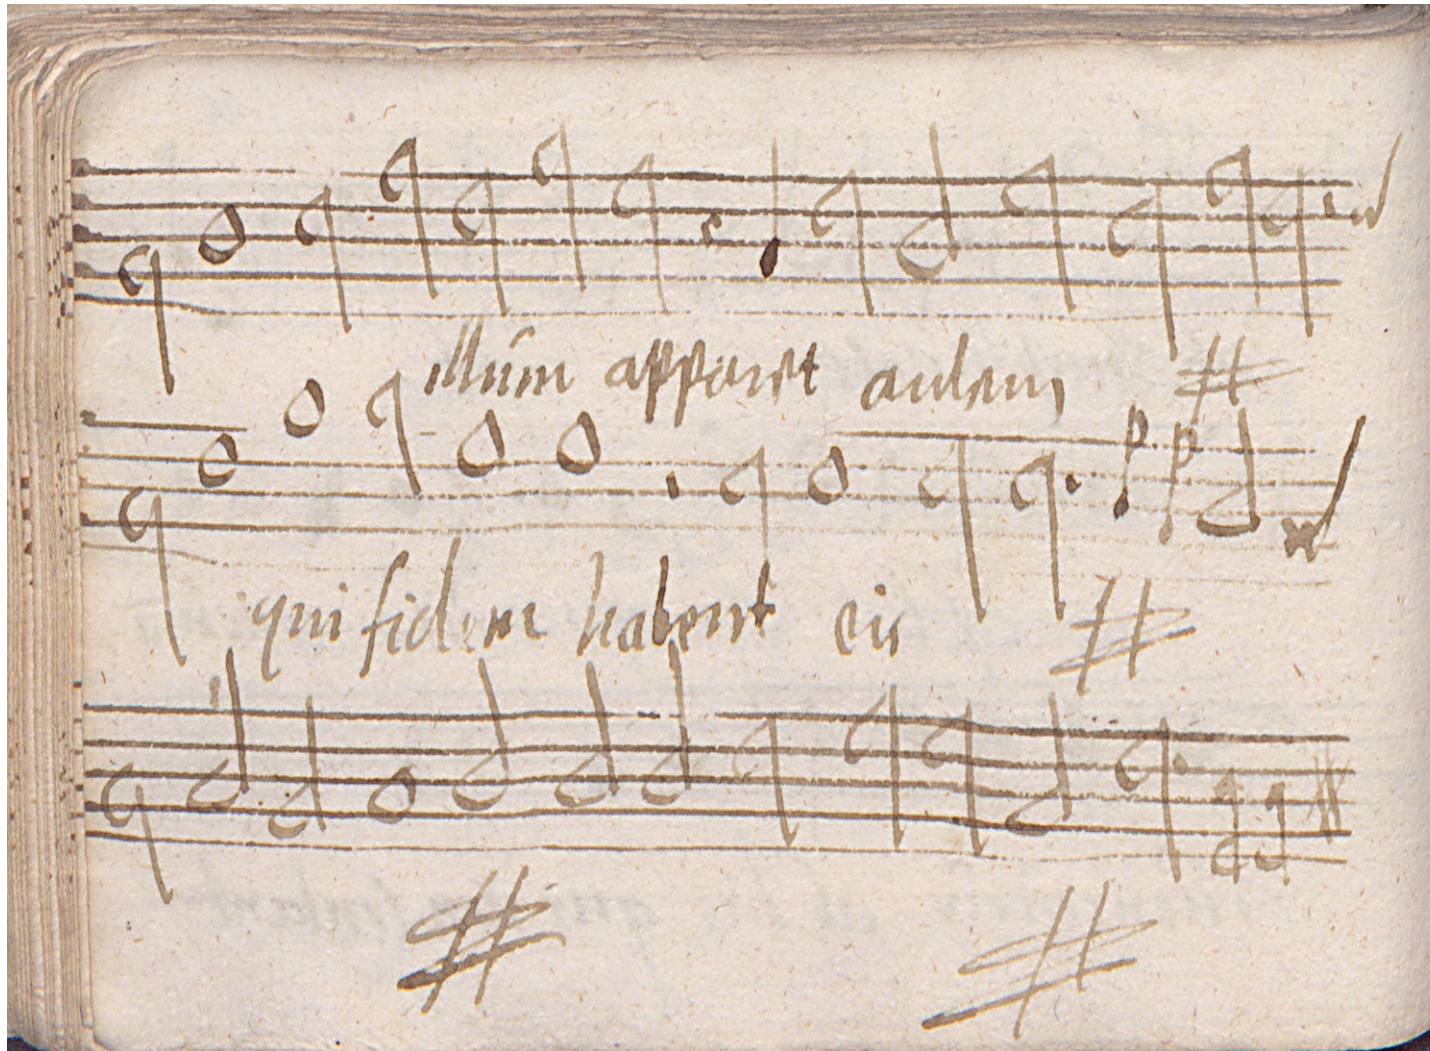 illum apparet autem
qui fidem habent eis